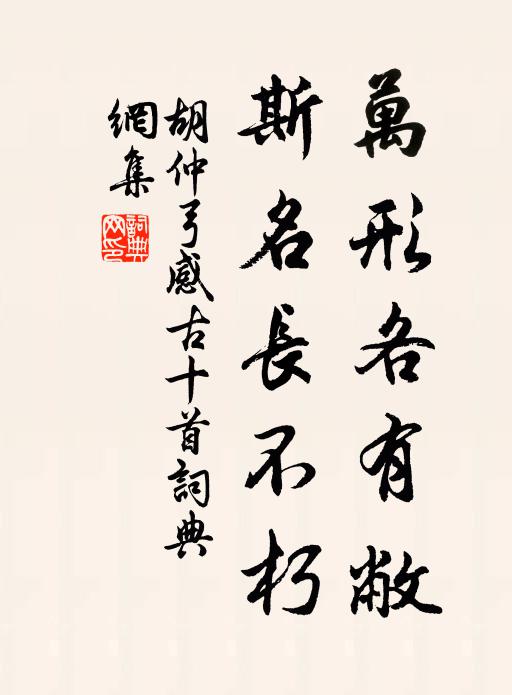 萬形各有敝
斯名長不朽
胡仲弓感古十首詞典
網集
詞典网印